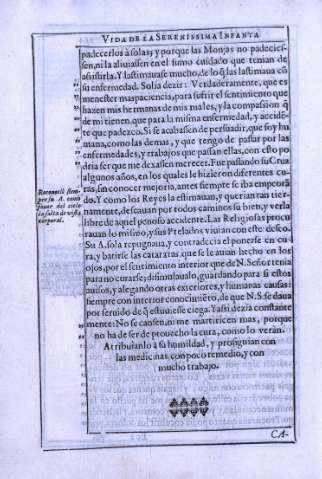 VIDA DE LA SERENISSIMA INFANTA
padecerlos à solas; y porque las Monjas no padecies-
sen, ni la aliuiassen en el sumo cuidado que tenian de
assistirla. Y lastimauase mucho, de lo q̃ las lastimaua cõ
su enfermedad. Solia dezir: Verdaderamente, que es
menester mas paciencia, para sufrir el sentimiento que
hazen mis hermanas de mis males, y la compassion q̃
de mi tienen, que para la misma enfermedad, y accidẽ-
te que padezco. Si se acabassen de persuadir, que soy hu
mana, como las demas, y que tengo de passar por las
enfermedades, y trabajos que passan ellas, con esto po
dria ser que me dexassen merecer. Fue passando su Cruz
algunos años, en los quales le hizieron diferentes cu-
ras, sin conocer mejoria, antes siempre se iba empeorã
do. Y como los Reyes la estimauan, y querian tan tier-
namente, deseauan por todos caminos su bien, y verla
libre de aquel penoso accidente. Las Religiosas procu
rauan lo mismo, y sus Prelados viuian con este deseo.
Su A. sola repugnaua, y contradecia el ponerse en cu-
ra, y batirse las cataratas, que se le auian hecho en los
ojos, por el sentimiento interior que de N. Señor tenia
para no curarse; disimulaualo, guardando para si estos
auisos, y alegando otras exteriores, y humanas causas:
siempre con interior conocimiẽto, de que N. S. se daua
por seruido de q̃ estuuiesse ciega. Y assi dezia constante
mente: No se cansen, ni me martiricen mas, porque
no ha de ser de prouecho la cura, como lo veràn.
Atribuianlo à su humildad, y proseguian con
las medicinas, con poco remedio, y con
mucho trabajo.
Reconociò siem-
pre su A. como
fauor del cielo
la falta de vista
corporal.
CA-